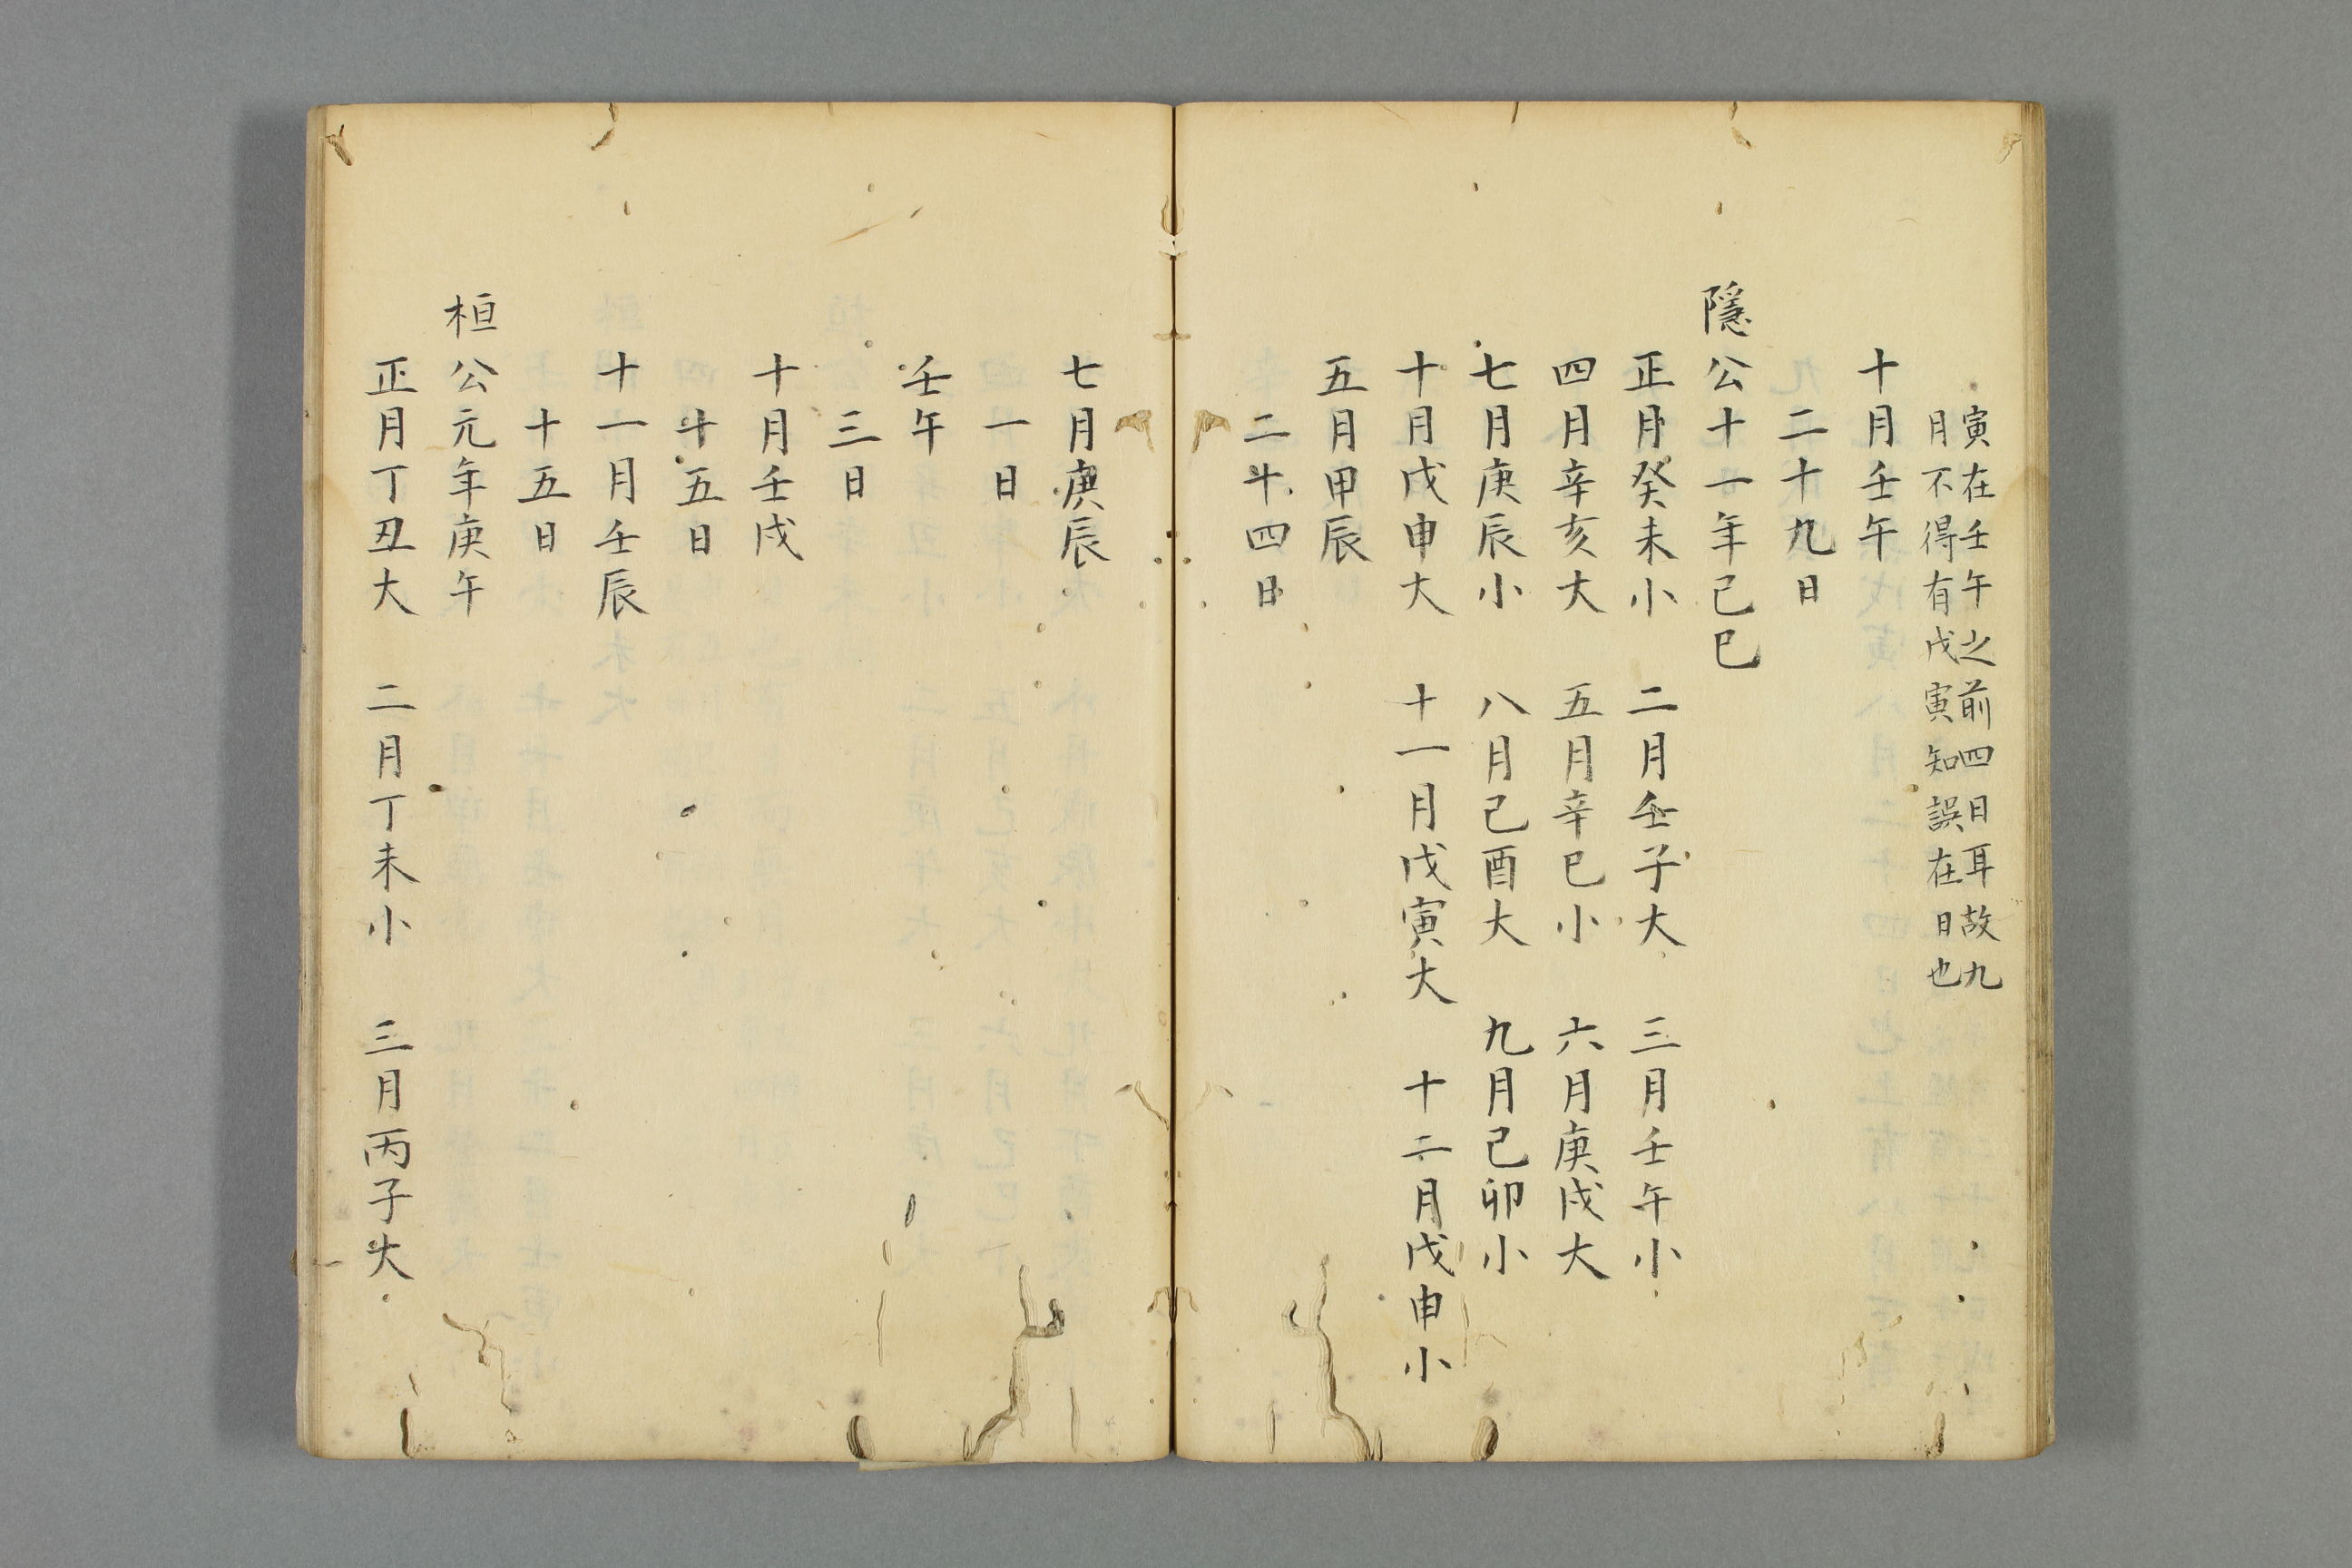 寅在壬午之前四日耳故九
月不得有戊寅知誤在日也
十月壬午
二十九日
隱公十一年己巳
正月癸未小　二月壬子大　三月壬午小
四月辛亥大　五月辛巳小　六月庚戌大
七月庚辰小　八月己酉大　九月己卯小
十月戊申大　十一月戊寅大　十二月戊申小
五月甲辰
二十四日
七月庚辰
一日
壬午
三日
十月壬戌
十五日
十一月壬辰
十五日
桓公元年庚午
正月丁丑大　二月丁未小　三月丙子大